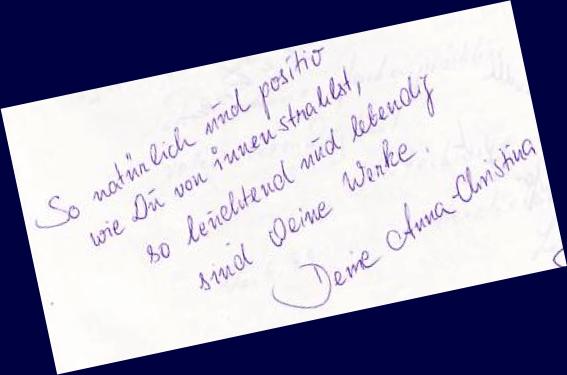 So natürlich und positiv
wie Du von innen strahlst,
so leuchtend und lebendig
sind Deine Werke.
Deine Anna-Christina